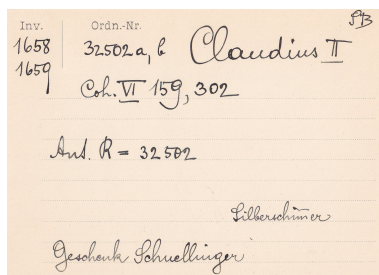 Inv. Ordn.-Nr.
1658 32502a, b Claudius II
1659
Coh. VI 159, 302
Ant. R = 32502
Silberschimer
Geschenk Schnellinger